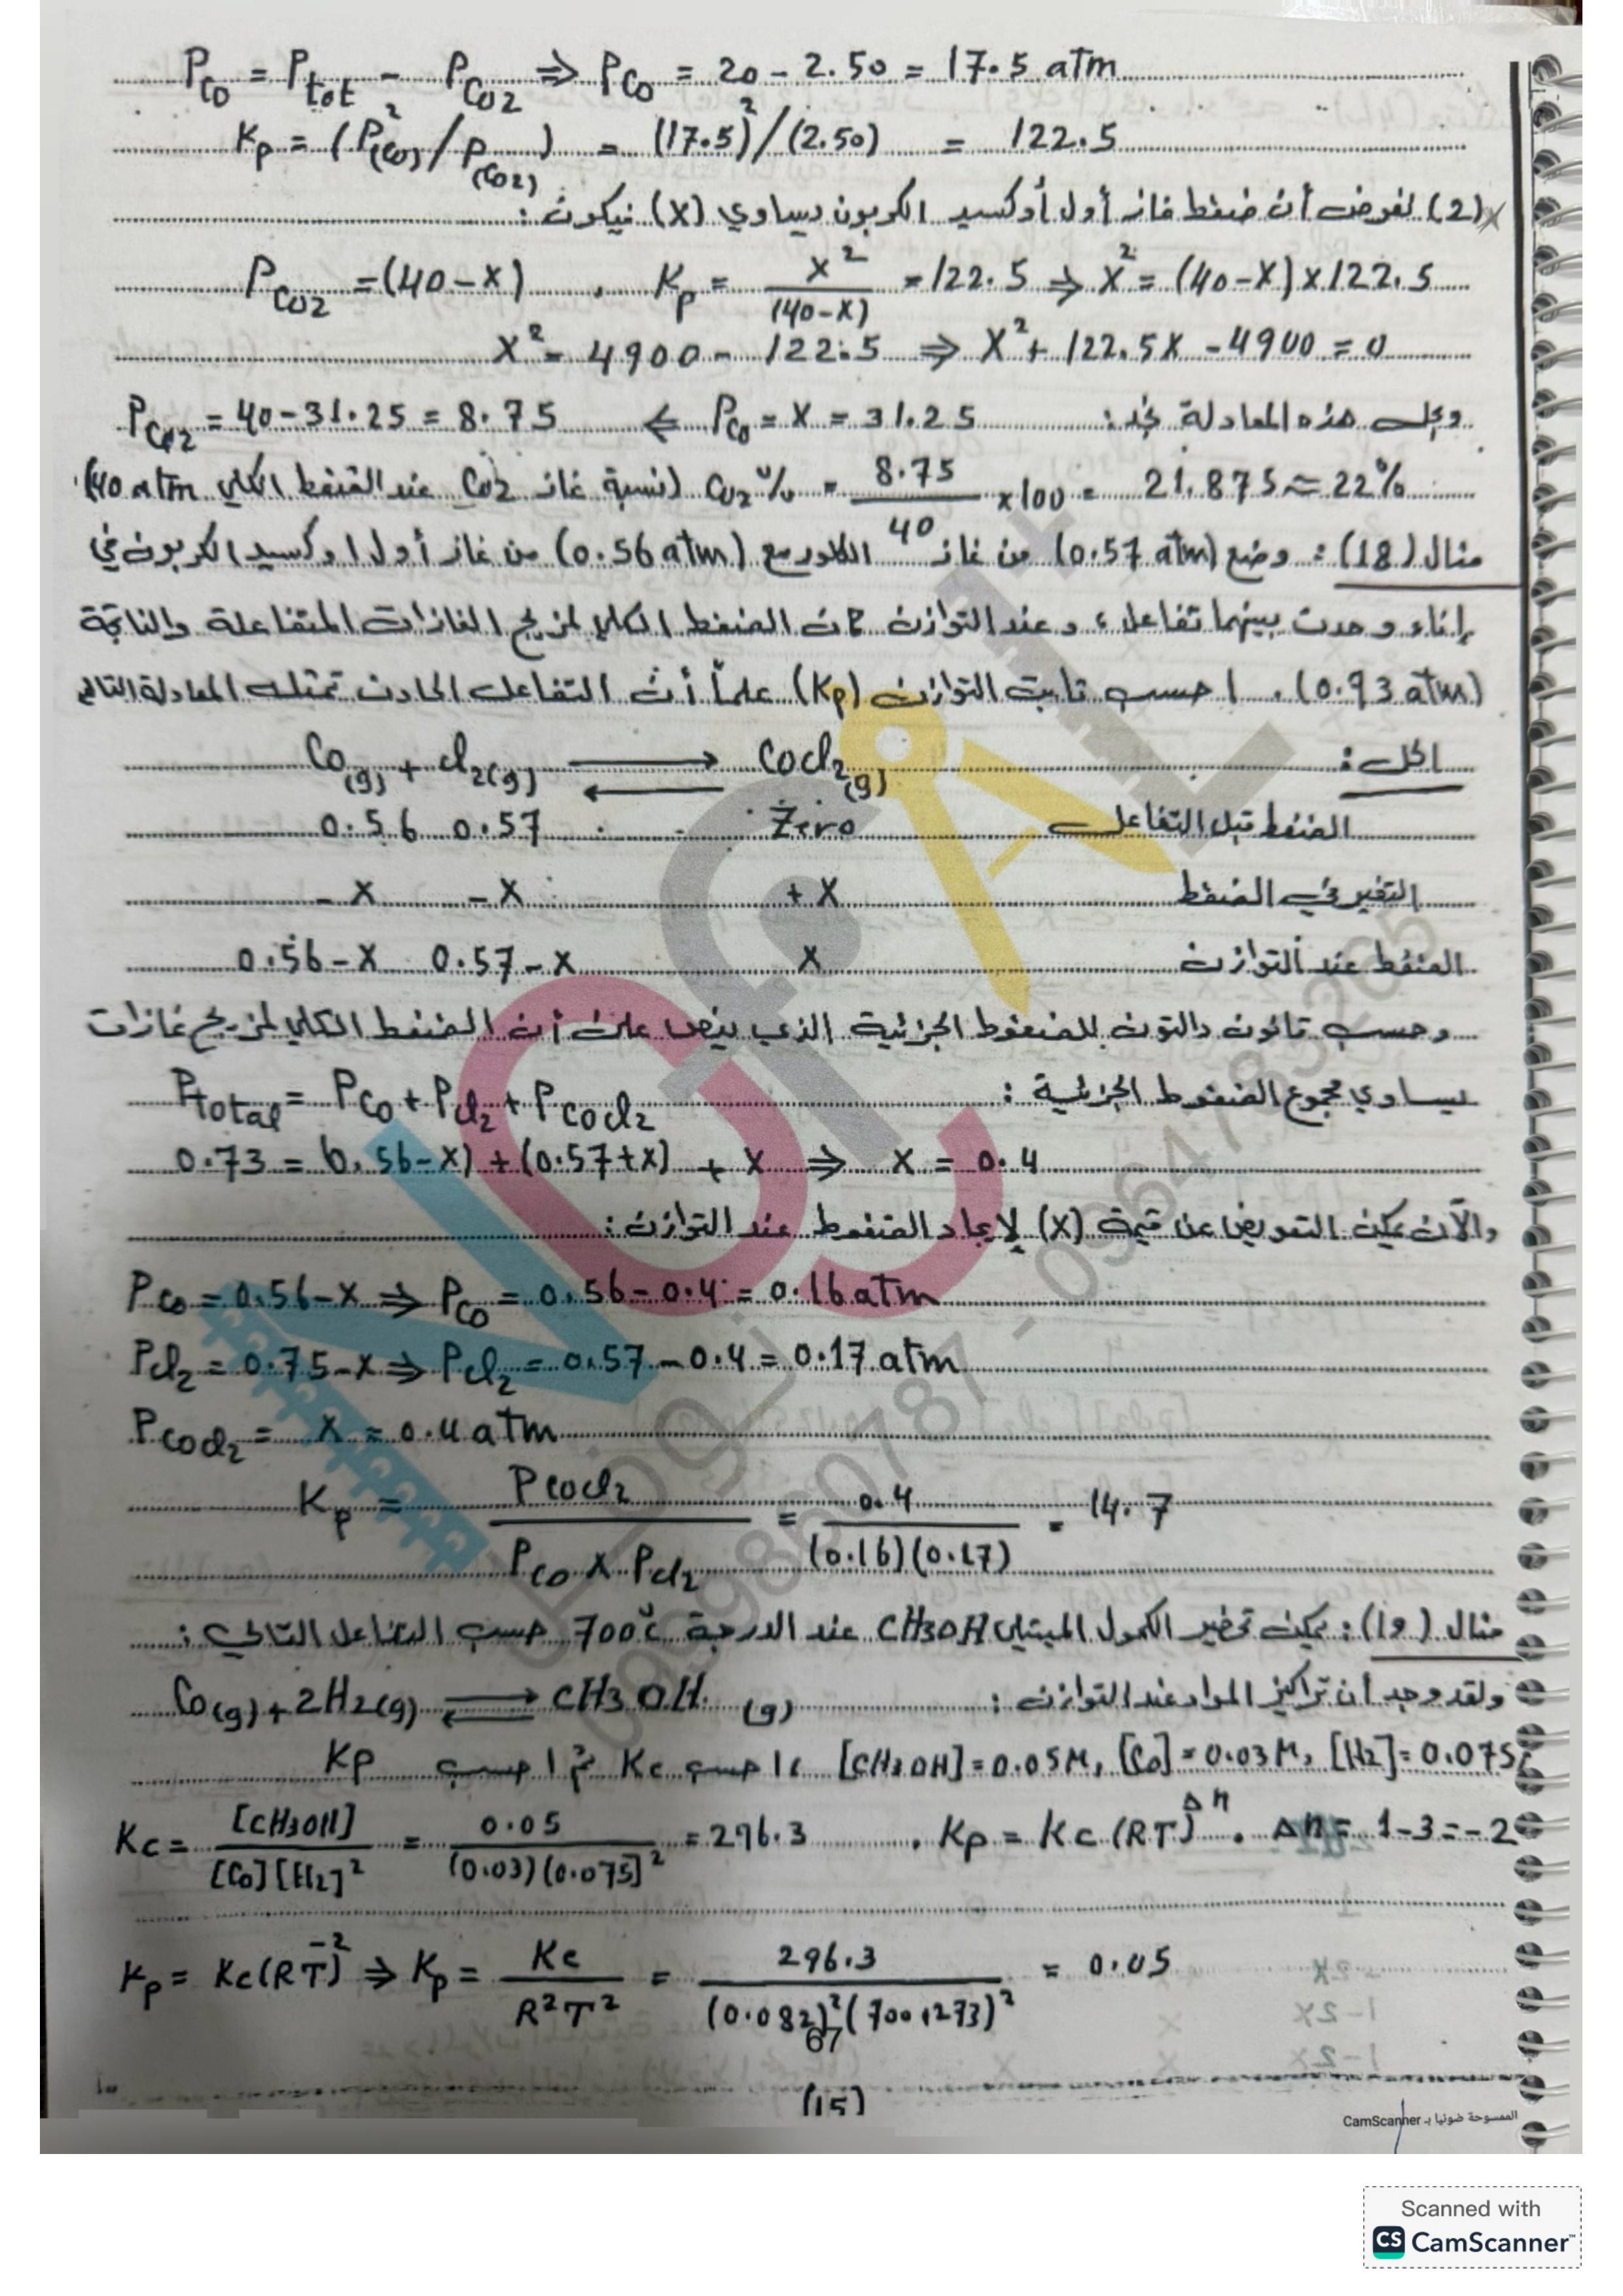 P_CO = P_tot - P_CO2 ⇒ P_CO = 20 - 2.50 = 17.5 atm
Kp = (P²(CO) / P(CO2)) = (17.5)² / (2.50) = 122.5
(2) لنفرض أن ضغط غاز أول أوكسيد الكربون يساوي (X) فيكون :
P_CO2 = (40-X) , Kp = X² / (40-X) = 122.5 ⇒ X² = (40-X) x 122.5
X² = 4900 - 122.5 ⇒ X² + 122.5X - 4900 = 0
وبحل هذه المعادلة نجد : P_CO = X = 31.25 ⇐ P_CO2 = 40 - 31.25 = 8.75
CO2 % = 8.75 / 40 x 100 = 21.875 ≈ 22% (نسبة غاز CO2 عند الضغط الكلي 40 atm)
مثال (18) : وضع (0.57 atm) من غاز الكلور مع (0.56 atm) من غاز أول اوكسيد الكربون في
إناء وحدث بينهما تفاعل ، وعند التوازن كان الضغط الكلي لمزيج الغازات المتفاعلة والناتجة
(0.93 atm) . احسب ثابت التوازن (Kp) علماً أن التفاعل الحادث تمثله المعادلة التالي
الحل : CO(g) + Cl2(g) ⇌ COCl2(g)
الضغط قبل التفاعل 0.56 0.57 Zero
التغير في الضغط - X - X + X
الضغط عند التوازن 0.56-X 0.57-X X
وحسب قانون دالتون للضغوط الجزئية الذي ينص على أن الضغط الكلي لمزيج غازات
يساوي مجموع الضغوط الجزئية : Ptotal = P_CO + P_Cl2 + P_COCl2
0.73 = (0.56-X) + (0.57+X) + X ⇒ X = 0.4
والآن يمكن التعويض عن قيمة (X) لإيجاد الضغوط عند التوازن :
P_CO = 0.56-X ⇒ P_CO = 0.56 - 0.4 = 0.16 atm
P_Cl2 = 0.75-X ⇒ P_Cl2 = 0.57 - 0.4 = 0.17 atm
P_COCl2 = X = 0.4 atm
Kp = P_COCl2 / P_CO x P_Cl2 = 0.4 / (0.16)(0.17) = 14.7
مثال (19) : يمكن تحضير الكحول الميتيلي CH3OH عند الدرجة 700°C حسب التفاعل التالي :
CO(g) + 2H2(g) ⇌ CH3OH (g) ولقد وجد أن تراكيز المواد عند التوازن :
[CH3OH] = 0.05M , [CO] = 0.03M , [H2] = 0.075 ، احسب Kc ثم احسب Kp
Kc = [CH3OH] / [CO][H2]² = 0.05 / (0.03)(0.075)² = 296.3 , Kp = Kc (RT)^Δn . Δn = 1-3 = -2
Kp = Kc(RT)^-2 ⇒ Kp = Kc / R²T² = 296.3 / (0.082)²(700+273)² = 0.05
67
(15)
الممسوحة ضوئيا بـ CamScanner
Scanned with
CS CamScanner